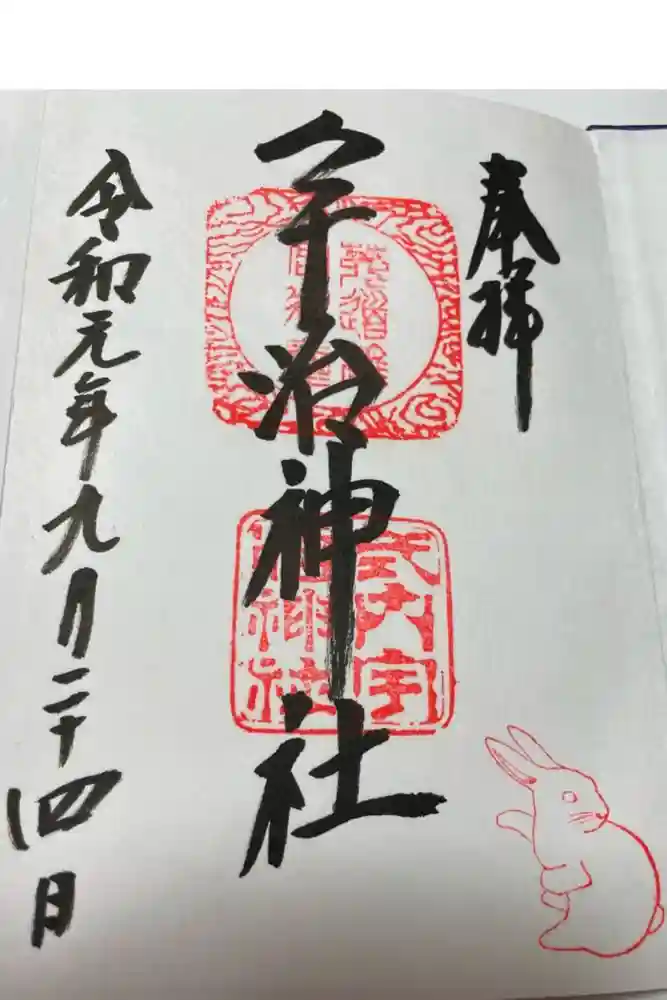 奉拝
宇治神社
令和元年九月二十四日
式内宇
治神社